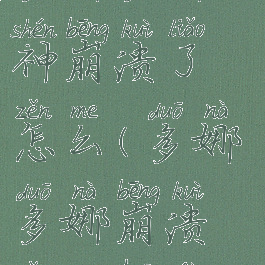 shén bēng kuì liǎo
神崩溃了
zěn me duō nà
怎么（多娜
duō nà bēng kuì
多娜崩溃